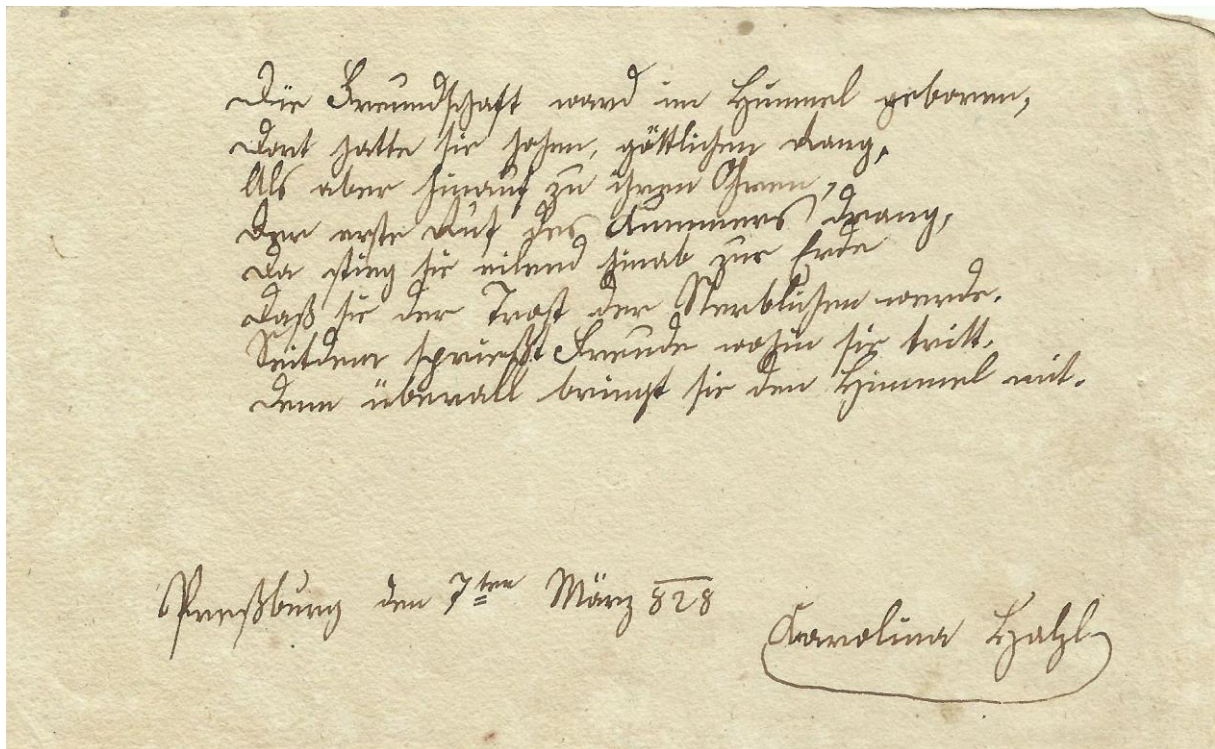 Die Freundschaft ward im Himmel geboren,
Dort hatte sie hohen, göttlichen Rang,
Als aber hinauf zu ihren Ohren,
Der erste Ruf des Kummers drang,
Da stieg sie eilend hinab zur Erde
Daß sie der Trost der Sterblichen werde.
Seitdem sprießt Freude wohin sie tritt.
Denn überall bringt sie den Himmel mit.
Preßburg den 7ten März 828
Carolina